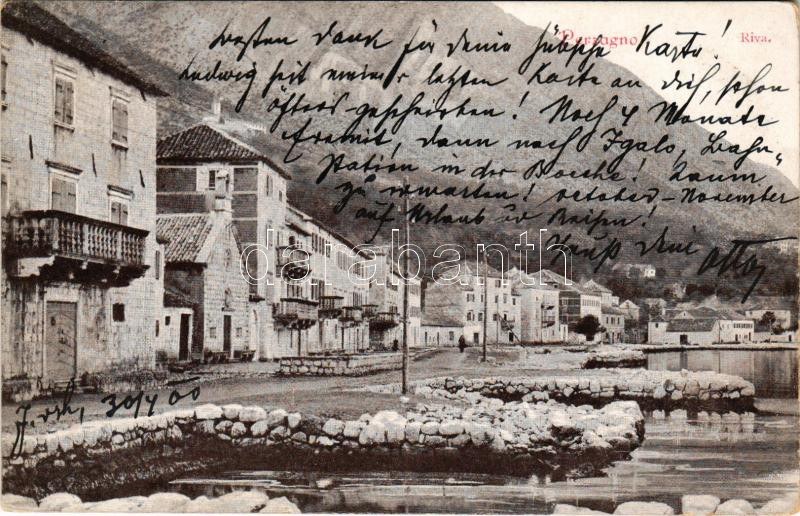 Perzagno
Riva.
Besten Dank für deine hübsche Karte!
Ludwig seit meiner letzten Karte an dich, schon
öfters geschrieben! Noch 4 Monate
, dann nach Igalo, Bahn-
station in der Bocche! Kaum
zu erwarten! October-November
auf Urlaub od Reisen!
Gruß dein
Otto
30/4 00
darabanth